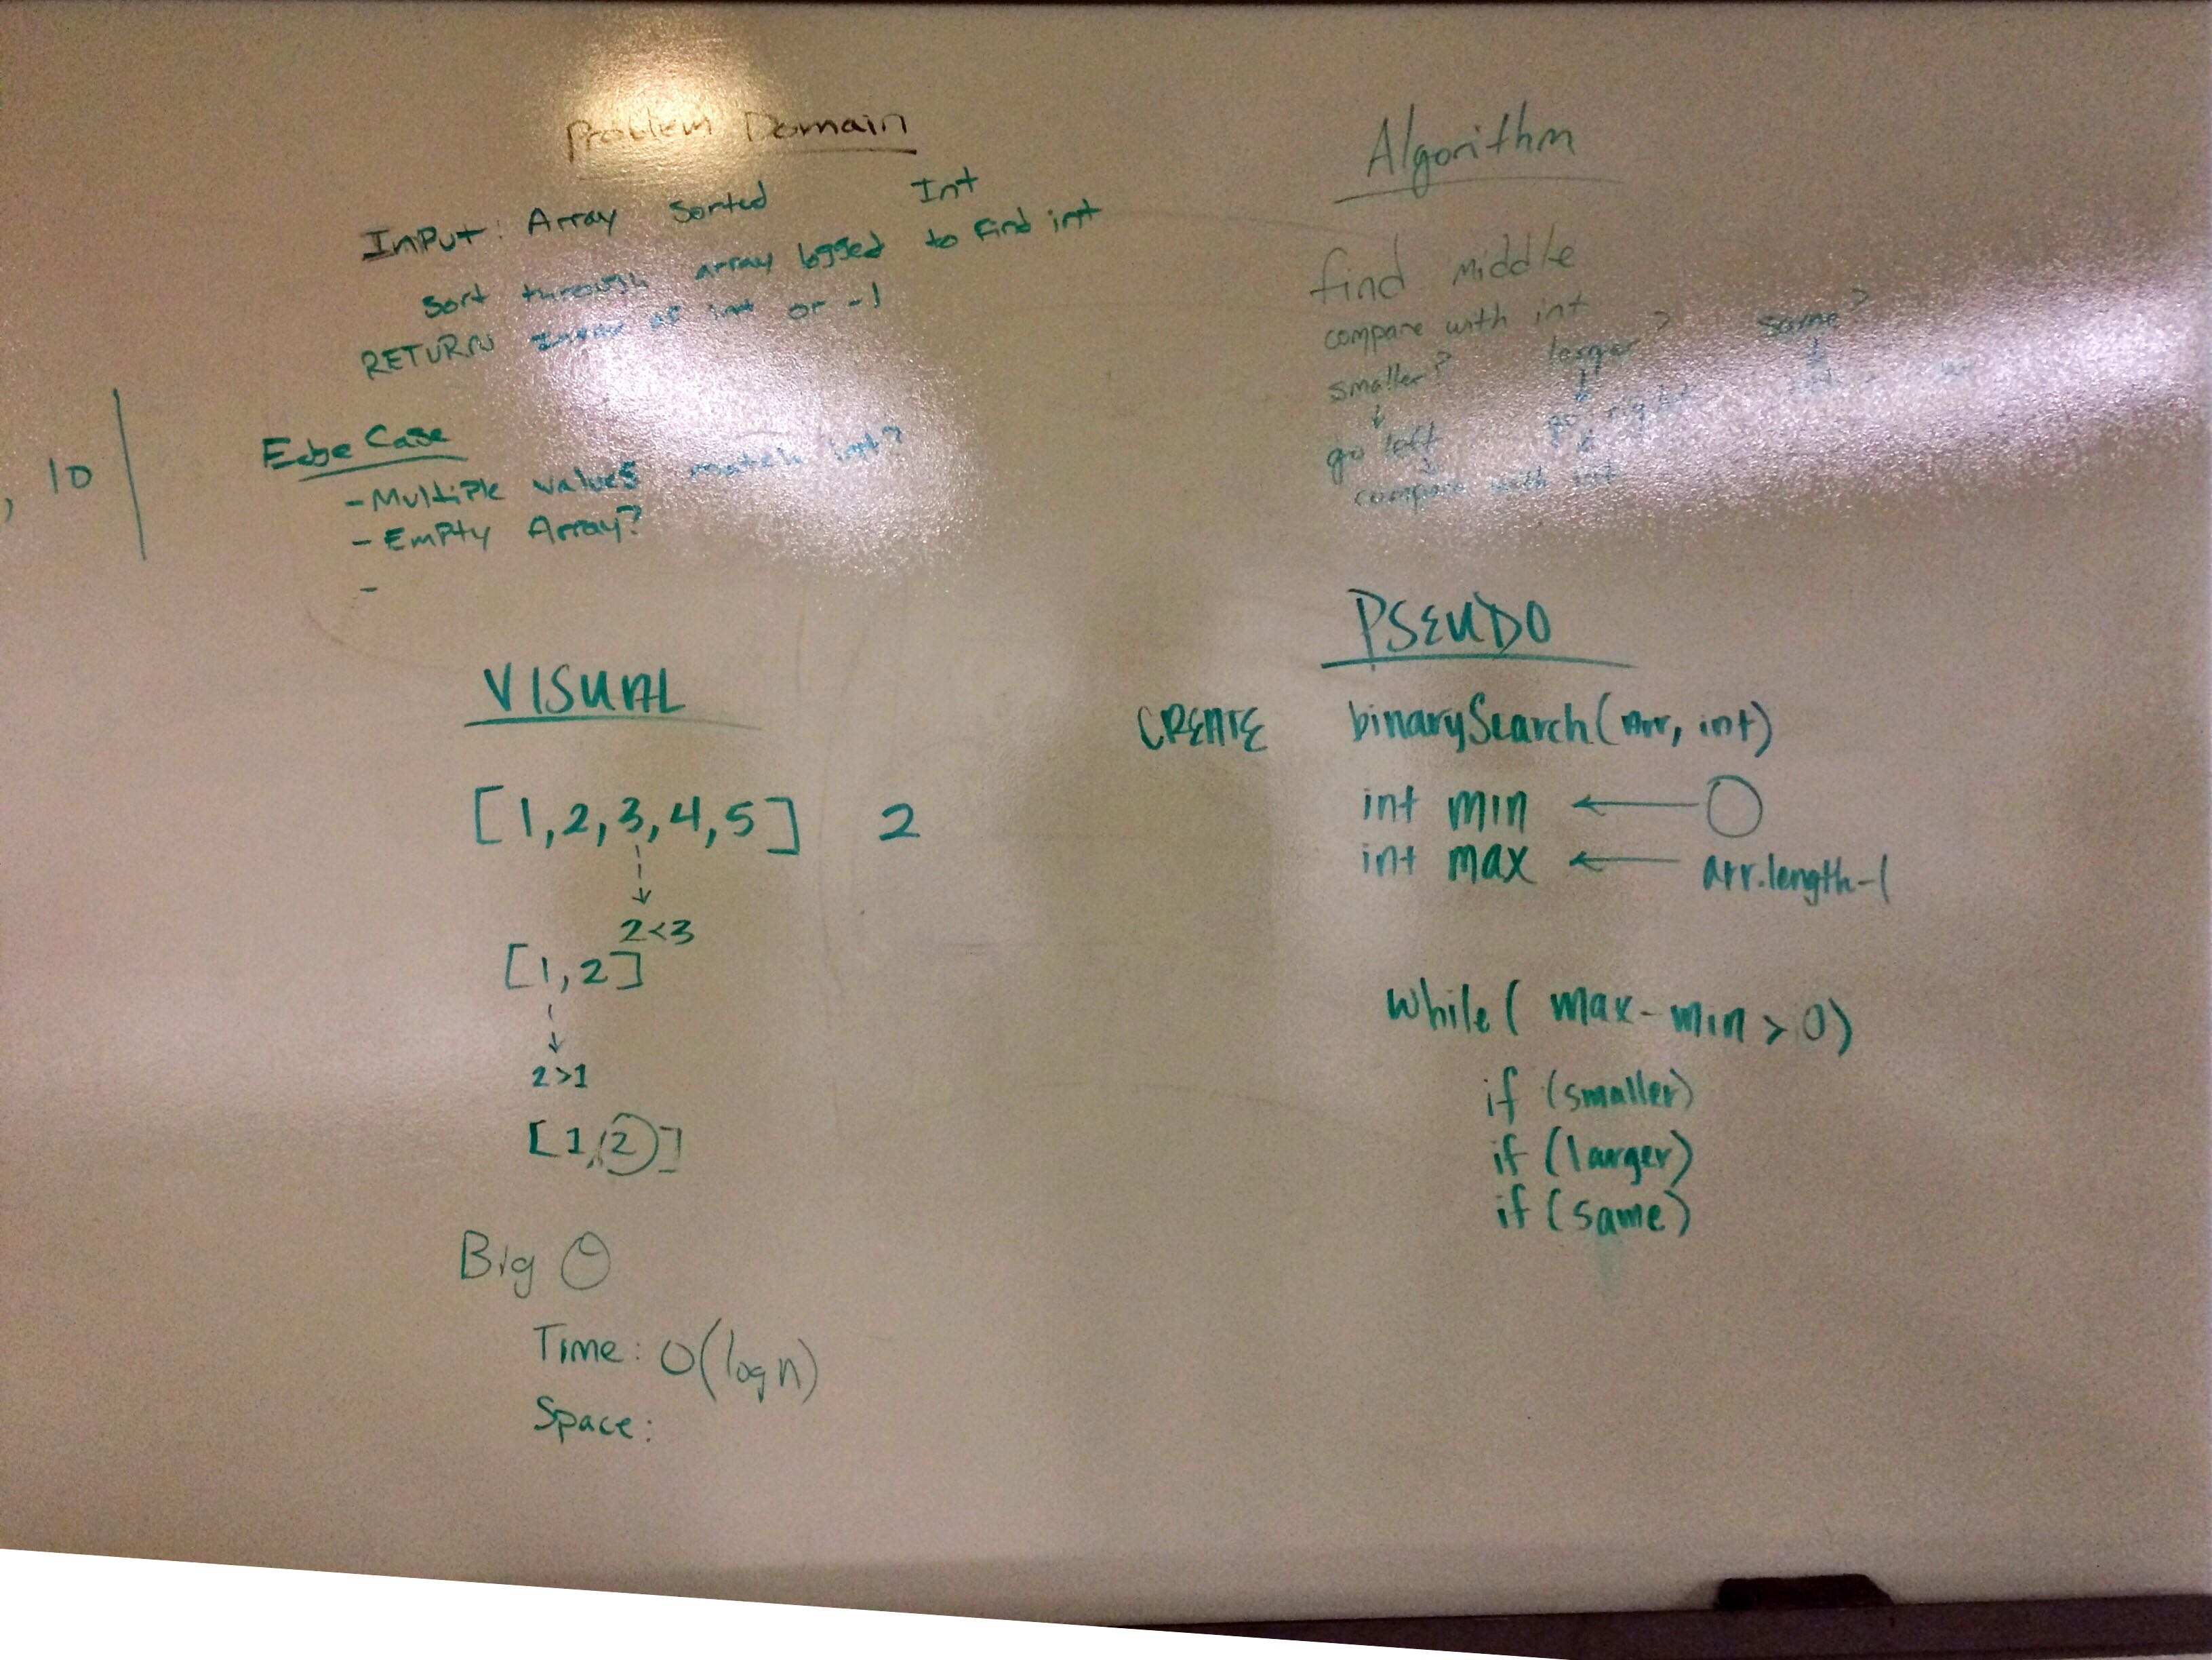 Problem Domain
Input: Array Sorted Int
Sort through array logged to find int
RETURN Index of int or -1
, 10
Edge Case
- Multiple values match int?
- Empty Array?
-
VISUAL
[1,2,3,4,5] 2
2<3
[1,2]
2>1
[1,2]
Big O
Time: O(log n)
Space:
Algorithm
find middle
compare with int
smaller? larger? same?
go left go right
compare with int
PSEUDO
CREATE binarySearch(Arr, int)
int min ← 0
int max ← arr.length-1
while( max-min > 0)
if (smaller)
if (larger)
if (same)